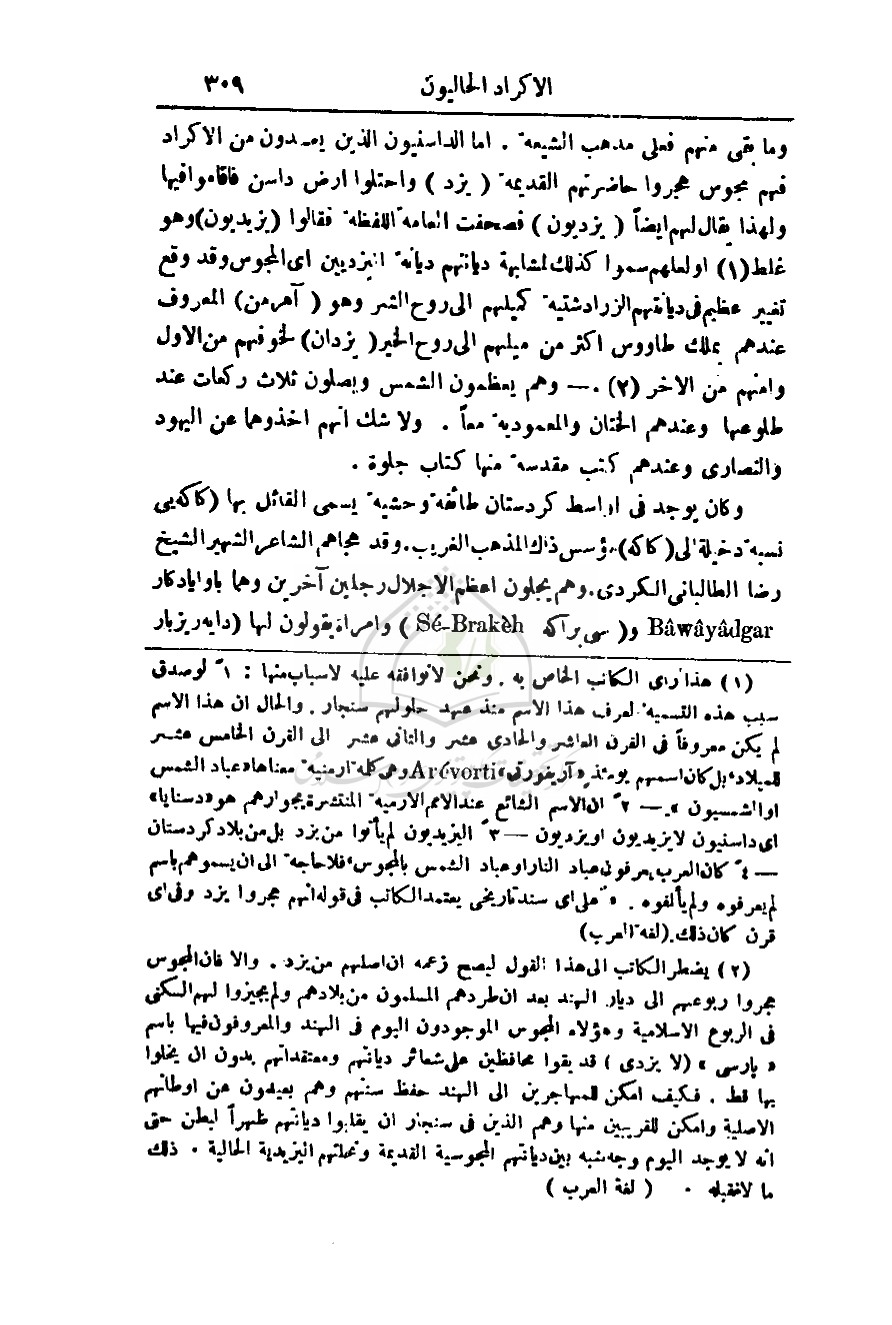 الاكراد الحاليون ٣٠٩
وما بقى منهم فعلى مذهب الشيعة . اما الداسنيون الذين يعدون من الاكراد
فهم مجوس هجروا حاضرتهم القديمة ( يزد ) واحتلوا ارض داسن فاقاموا فيها
ولهذا يقال لهم ايضاً ( يزديون ) فصحفت العامة اللفظة فقالوا (يزيديون) وهو
غلط (١) او لعلهم سموا كذلك لمشابهة ديانتهم ديانة اليزديين اى المجوس وقد وقع
تغيير عظيم فى ديانتهم الزرادشتية كميلهم الى روح الشر وهو ( آهرمن) المعروف
عندهم بملك طاووس اكثر من ميلهم الى روح الخير ( يزدان) لخوفهم من الاول
وامنهم من الآخر (٢) .— وهم يعظمون الشمس ويصلون ثلاث ركعات عند
طلوعها وعندهم الختان والمعمودية معاً . ولا شك انهم اخذوها عن اليهود
والنصارى وعندهم كتب مقدسة منها كتاب جلوة .
وكان يوجد فى اواسط كردستان طائفة وحشية يسمى القائل بها (كاكه‌يى
نسبة دخيلة الى (كاكه) مؤسس ذاك المذهب الغريب . وقد هجاهم الشاعر الشهير الشيخ
رضا الطالبانى الكردى . وهم يجلون اعظم الاجلال رجلين آخرين وهما باوايادكار
Bâwâyâdgar و( سى براكه Sé-Brakèh ) وامراة يقولون لها (دايه ريزبار
(١) هذا راى الكاتب الخاص به . ونحن لا نوافقه عليه لاسباب منها : ١ً لو صدق
سبب هذه التسمية لعرف هذا الاسم منذ عهد حلولهم سنجار . والحال ان هذا الاسم
لم يكن معروفاً فى القرن العاشر والحادى عشر والثانى عشر الى القرن الخامس عشر
للميلاد، بل كان اسمهم يومئذ «آريفورتى» Arévorti وهى كلة ارمنية معناها «عباد الشمس
او الشمسيون ». — ٢ً ان الاسم الشائع عند الامم الارمية المنتشرة بجوارهم هو «دسنايا»
اى داسنيون لا يزيديون او يزديون — ٣ً اليزيديون لم يأتوا من يزد بل من بلاد كردستان
— ٤ً كان العرب يعرفون عباد النار او عباد الشمس بالمجوس، فلا حاجة الى ان يسموهم باسم
لم يعرفوه ولم يألفوه . ٥ً على اى سند تاريخى يعتمد الكاتب فى قوله انهم هجروا يزد وفى اى
قرن كان ذلك. (لغة العرب)
(٢) يضطر الكاتب الى هذا القول ليصح زعمه ان اصلهم من يزد . والا فان المجوس
هجروا ربوعهم الى ديار الهند بعد ان طردهم المسلمون من بلادهم ولم يجيزوا لهم السكنى
فى الربوع الاسلامية وهؤلاء المجوس الموجودون اليوم فى الهند والمعروفون فيها باسم
« پارسى » (لا يزدى ) قد بقوا محافظين على شعائر ديانتهم ومعتقداتهم بدون ان يخلوا
بها قط . فكيف امكن للمهاجرين الى الهند حفظ سنتهم وهم بعيدون عن اوطانهم
الاصلية وامكن للقريبين منها وهم الذين فى سنجار ان يقلبوا ديانتهم ظهراً لبطن حتى
انه لا يوجد اليوم وجه شبه بين ديانتهم المجوسية القديمة ونحلتهم اليزيدية الحالية . ذلك
ما لا نقبله . ( لغة العرب )